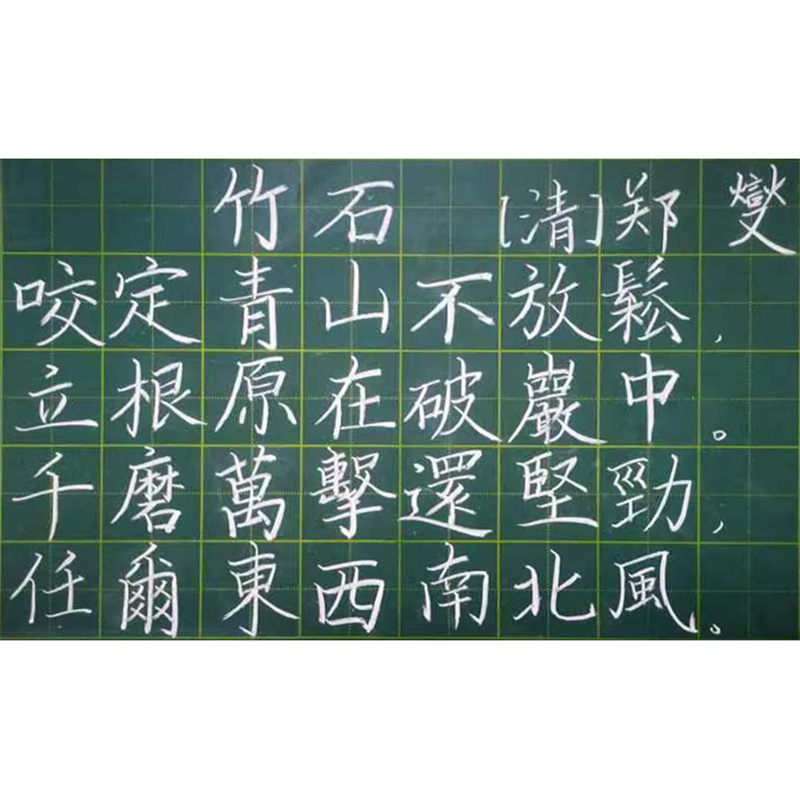 竹石 [清]郑燮
咬定青山不放鬆,
立根原在破巖中。
千磨萬擊還堅勁,
任爾東西南北風。